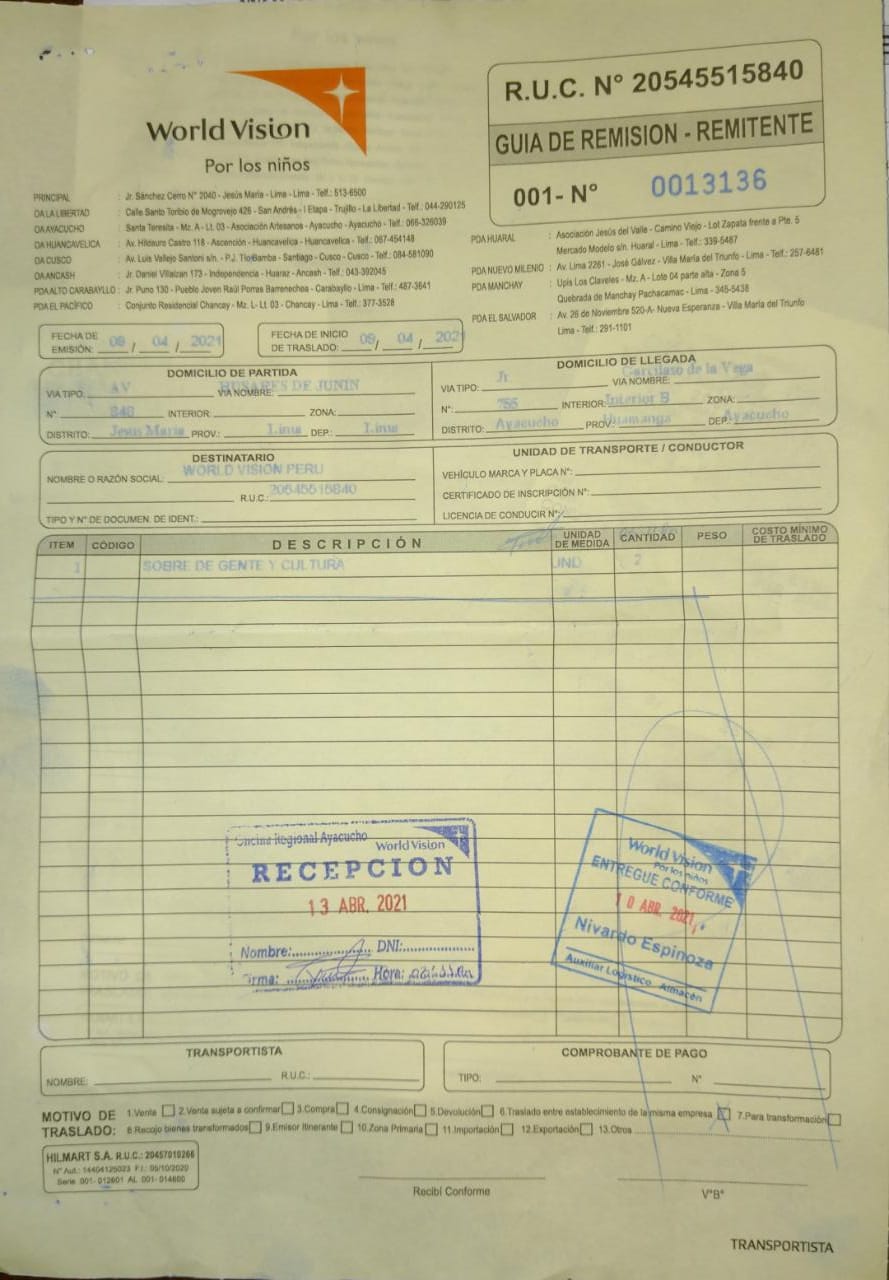 World Vision
Por los niños
R.U.C. N° 20545515840
GUIA DE REMISION - REMITENTE
001- N° 0013136
PRINCIPAL : Jr. Sánchez Cerro N° 2040 - Jesús María - Lima - Lima - Telf.: 513-6500
OA LA LIBERTAD : Calle Santo Toribio de Mogrovejo 426 - San Andrés - I Etapa - Trujillo - La Libertad - Telf.: 044-290125
OA AYACUCHO : Santa Teresita - Mz. A - Lt. 03 - Asociación Artesanos - Ayacucho - Ayacucho - Telf.: 066-326039
OA HUANCAVELICA : Av. Hildauro Castro 118 - Ascención - Huancavelica - Huancavelica - Telf.: 067-454148
OA CUSCO : Av. Luis Vallejo Santoni s/n. - P.J. Tío Bamba - Santiago - Cusco - Cusco - Telf.: 084-581090
OA ANCASH : Jr. Daniel Villaizan 173 - Independencia - Huaraz - Ancash - Telf.: 043-392045
PDA ALTO CARABAYLLO : Jr. Puno 130 - Pueblo Joven Raúl Porras Barrenechea - Carabayllo - Lima - Telf.: 487-3641
PDA EL PACÍFICO : Conjunto Residencial Chancay - Mz. L- Lt. 03 - Chancay - Lima - Telf.: 377-3528
PDA HUARAL : Asociación Jesús del Valle - Camino Viejo - Lot Zapata frente a Pte. 5
Mercado Modelo s/n. Huaral - Lima - Telf.: 339-5487
PDA NUEVO MILENIO : Av. Lima 2261 - José Gálvez - Villa María del Triunfo - Lima - Telf.: 257-6481
PDA MANCHAY : Upis Los Claveles - Mz. A - Lote 04 parte alta - Zona 5
Quebrada de Manchay Pachacamac - Lima - 345-5438
PDA EL SALVADOR : Av. 26 de Noviembre 520-A- Nueva Esperanza - Villa María del Triunfo
Lima - Telf.: 291-1101
FECHA DE EMISIÓN: 09 / 04 / 2021
FECHA DE INICIO DE TRASLADO: 09 / 04 / 2021
DOMICILIO DE PARTIDA
VIA TIPO: AV VIA NOMBRE: HUSARES DE JUNIN
N° 840 INTERIOR: ZONA:
DISTRITO: Jesus Maria PROV.: Lima DEP.: Lima
DOMICILIO DE LLEGADA
VIA TIPO: Jr VIA NOMBRE: Garcilaso de la Vega
N°: 755 INTERIOR: Interior B ZONA:
DISTRITO: Ayacucho PROV.: Huamanga DEP.: Ayacucho
DESTINATARIO
NOMBRE O RAZÓN SOCIAL: WORLD VISION PERU
R.U.C.: 20545515840
TIPO Y N° DE DOCUMEN. DE IDENT.:
UNIDAD DE TRANSPORTE / CONDUCTOR
VEHÍCULO MARCA Y PLACA N°:
CERTIFICADO DE INSCRIPCIÓN N°:
LICENCIA DE CONDUCIR N°:
ITEM CÓDIGO DESCRIPCIÓN UNIDAD DE MEDIDA CANTIDAD PESO COSTO MÍNIMO DE TRASLADO
1 SOBRE DE GENTE Y CULTURA UND 2
Oficina Regional Ayacucho World Vision
RECEPCION
13 ABR. 2021
Nombre: DNI:
Firma: Hora:
World Vision
Por los niños
ENTREGUE CONFORME
10 ABR. 2021
Nivardo Espinoza
Auxiliar Logístico - Almacén
TRANSPORTISTA
NOMBRE: R.U.C.:
COMPROBANTE DE PAGO
TIPO: N°
MOTIVO DE TRASLADO: 1.Venta 2.Venta sujeta a confirmar 3.Compra 4.Consignación 5.Devolución 6.Traslado entre establecimiento de la misma empresa 7.Para transformación
8.Recojo bienes transformados 9.Emisor Itinerante 10.Zona Primaria 11.Importación 12.Exportación 13.Otros
HILMART S.A. R.U.C.: 20457010266
N° Aut.: 14404125023 F.I.: 05/10/2020
Serie 001- 012601 AL 001- 014600
Recibí Conforme
V°B°
TRANSPORTISTA